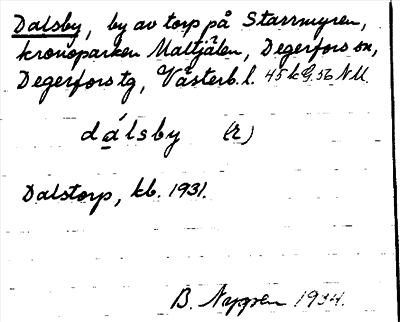 Dalsby, by av torp på Starrmyren,
kronoparken Maltjälen, Degerfors sn,
Degerfors tg, Västerb. l. 45 k G. 56 N U.
dálsby (r)
Dalstorp, kb. 1931.
B. Nygren 1934.